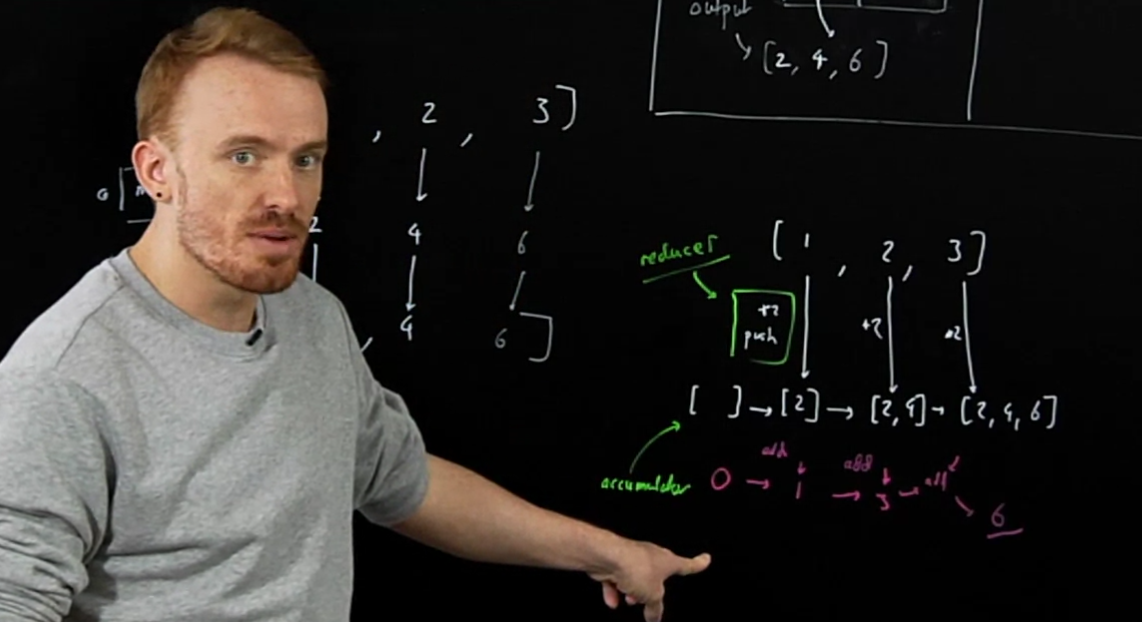 output
[2, 4, 6]
, 2 , 3]
2 4 6
, 4 6]
reducer
[1, 2, 3]
*2
push
*2
*2
[ ] → [2] → [2, 4] → [2, 4, 6]
accumulator
add add add
0 → 1 → 3 → 6